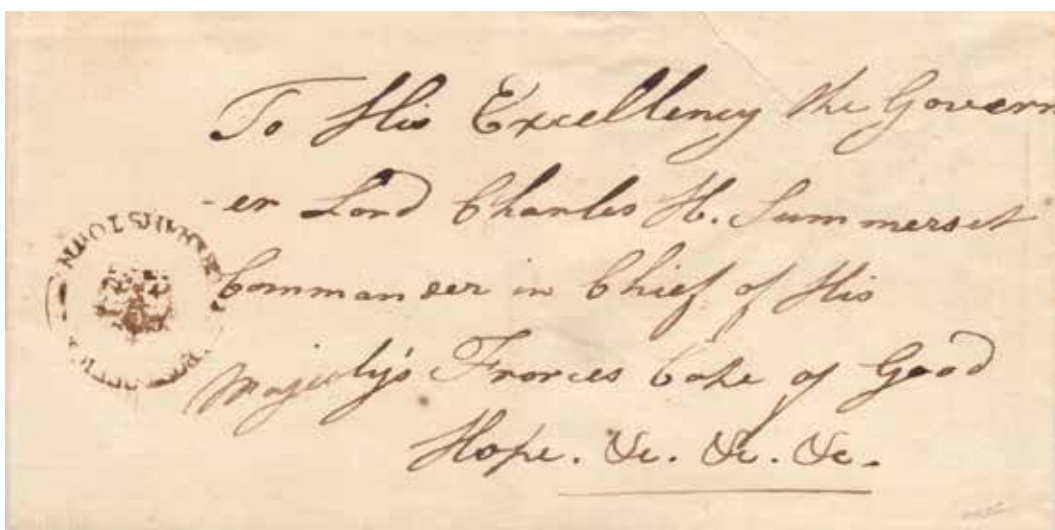 To His Excellency the Govern
-er Lord Charles H. Summerset
Commander in Chief of His
Majesty's Frorces Cape of Good
Hope. &c. &c. &c.
POST OFFICE